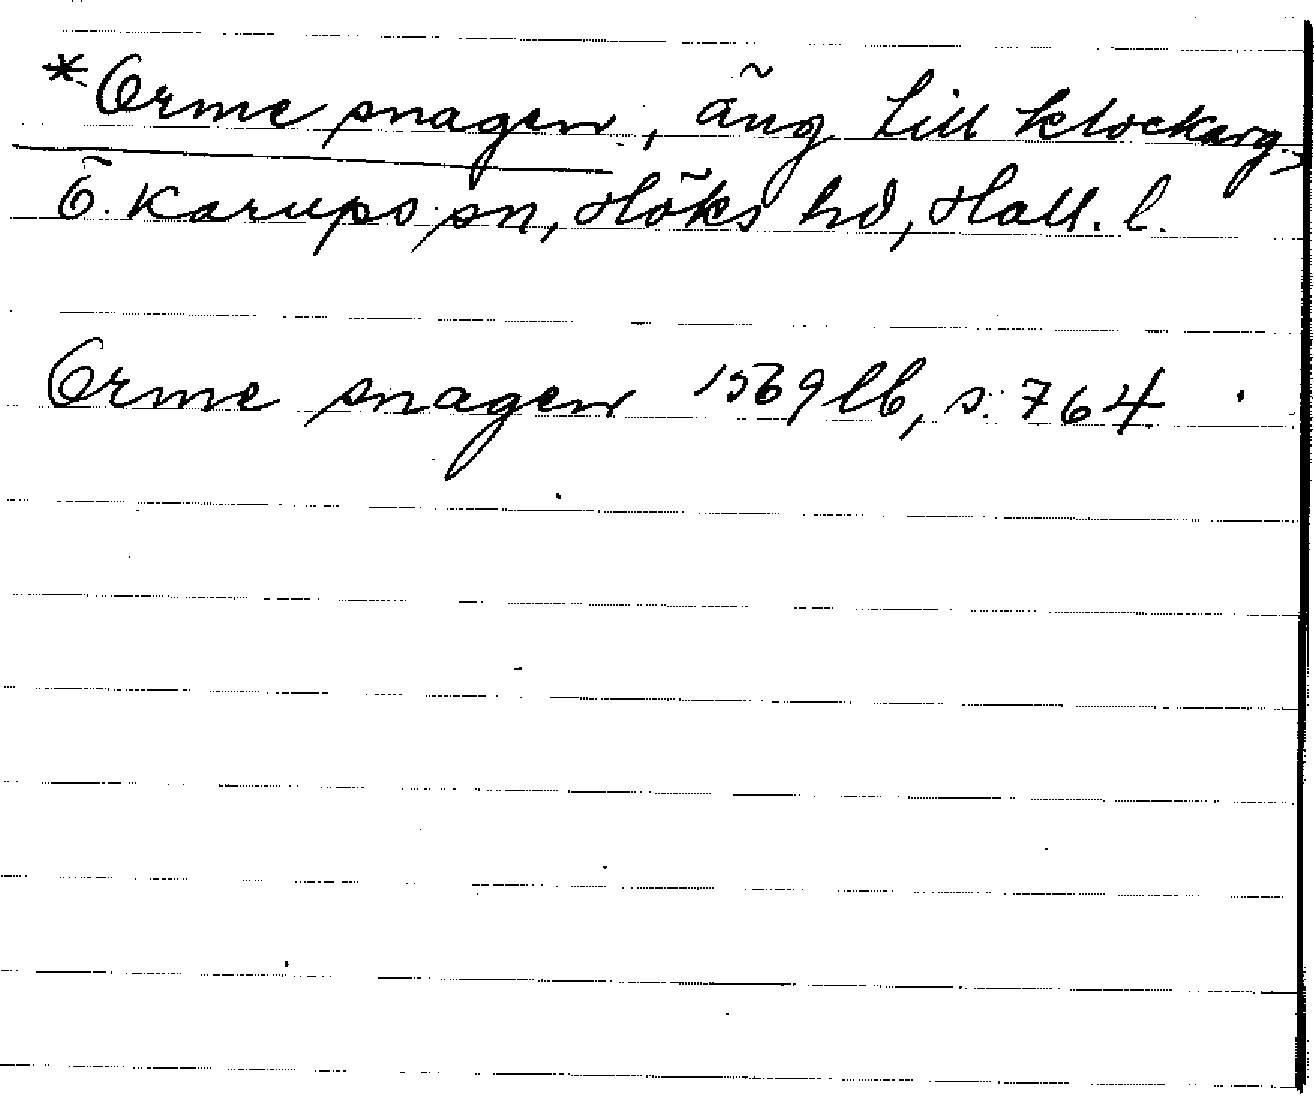 *Orme snagen, äng till klockarg.,
Ö. Karups sn, Höks hd, Hall. l.
Orme snagen 1569 lb, s. 764.